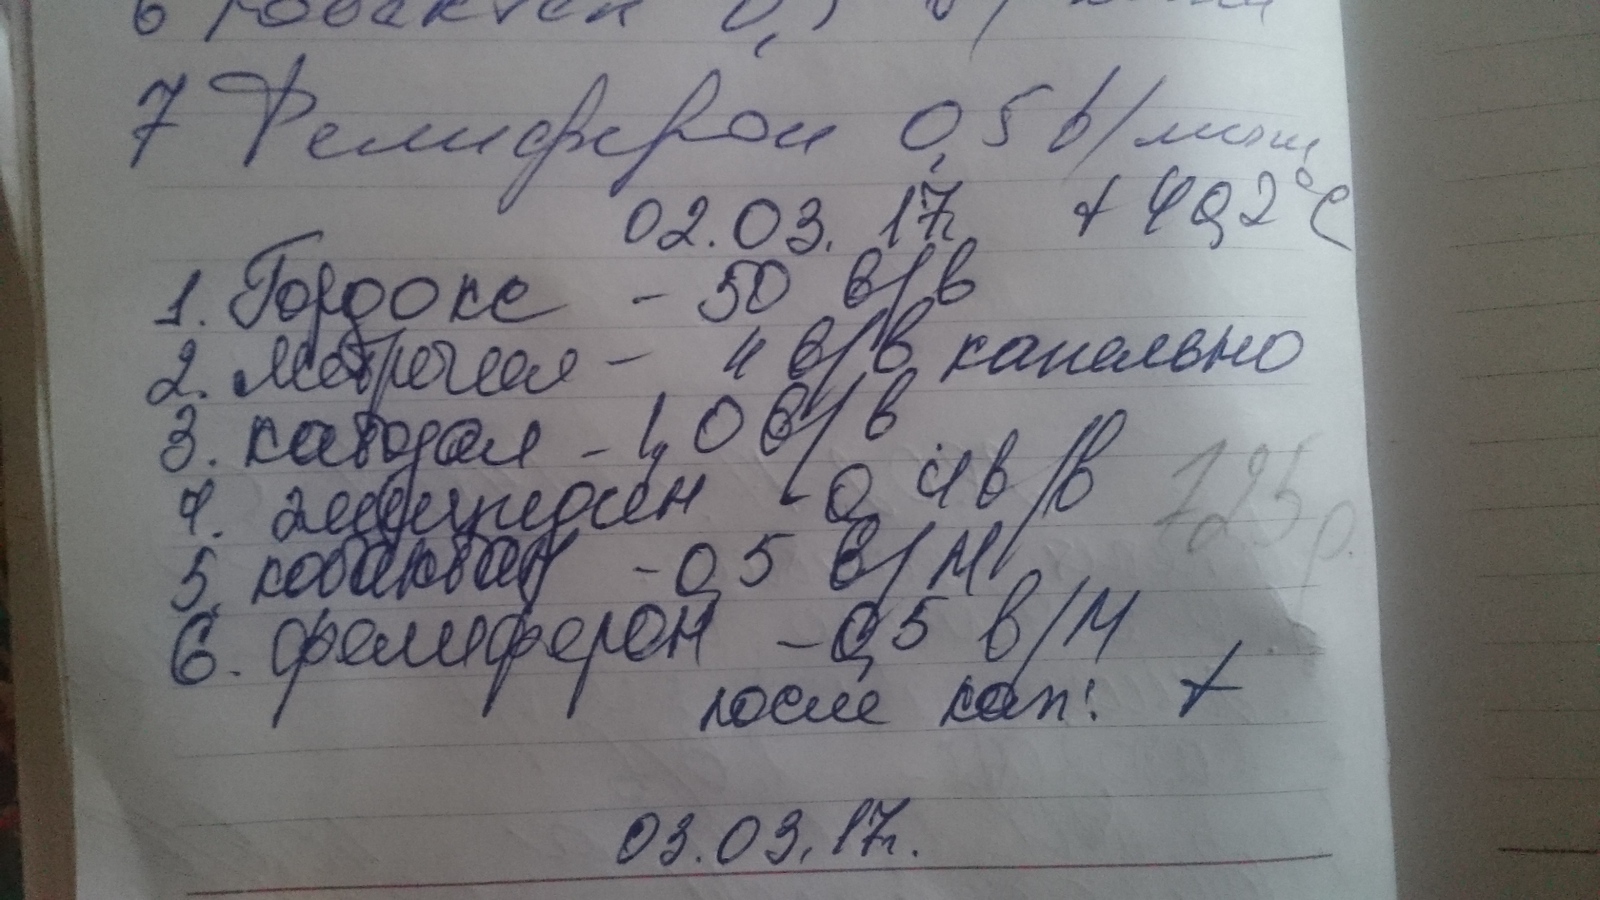 7 Фелиферон 0,5 в/мышц
02.03.17г. + 40,2°C
1. Гордокс - 50 в/в
2. Метрогил - 4 в/в капельно
3. катозал - 1,0 в/в
4. - 0,4 в/в 725 р
5. кобактан - 0,5 в/м
6. фелиферон - 0,5 в/м
после кап: +
03.03.17г.